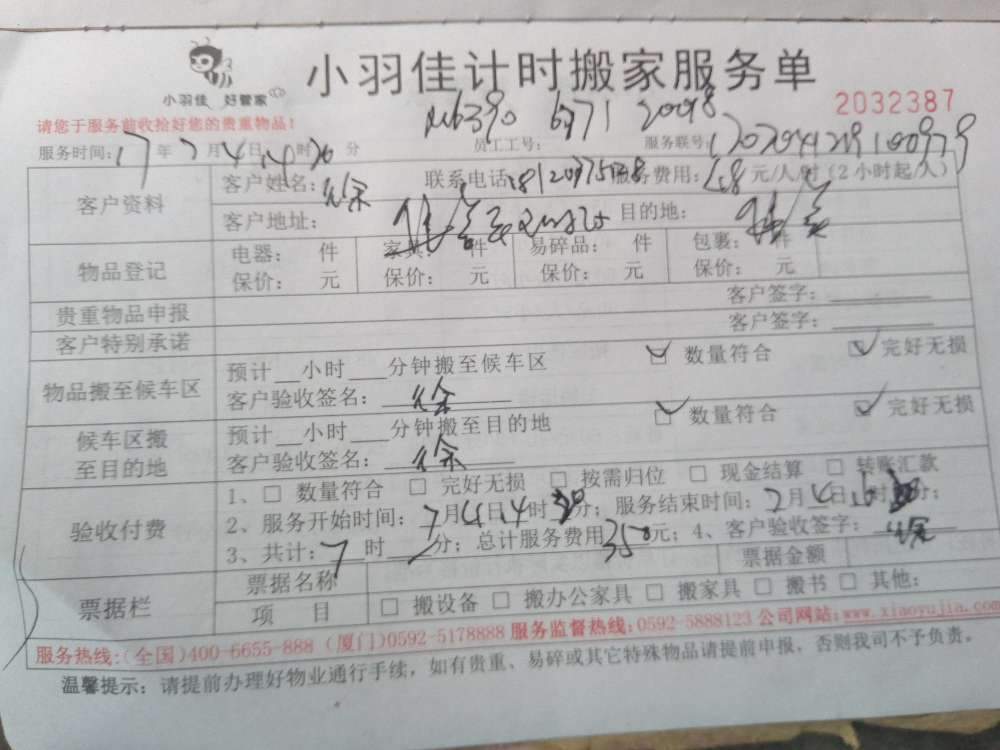 小羽佳计时搬家服务单
小羽佳 好管家
2032387
请您于服务前收拾好您的贵重物品!
6971 20098
服务时间: 17年 月4日 分 员工工号: 服务联号:
客户资料 客户姓名: 徐 联系电话: 服务费用: 元/人/时(2小时起/人)
客户地址: 目的地:
物品登记 电器: 件 家具: 件 易碎品: 件 包裹: 件
保价: 元 保价: 元 保价: 元 保价: 元
贵重物品申报 客户签字:
客户特别承诺 客户签字:
物品搬至候车区 预计__小时___分钟搬至候车区 数量符合 完好无损
客户验收签名: 徐
候车区搬至目的地 预计__小时___分钟搬至目的地 数量符合 完好无损
客户验收签名: 徐
验收付费 1、□ 数量符合 □ 完好无损 □ 按需归位 □ 现金结算 □ 转账汇款
2、服务开始时间: 月4日14时 分; 服务结束时间: 月4日16时 分;
3、共计: 时 分; 总计服务费用350元; 4、客户验收签字: 徐
票据栏 票据名称 票据金额
项 目 □ 搬设备 □ 搬办公家具 □ 搬家具 □ 搬书 □ 其他:
服务热线:(全国)400-6655-888 (厦门)0592-5178888 服务监督热线:0592-5888123 公司网站:www.xiaoyujia.com
温馨提示: 请提前办理好物业通行手续，如有贵重、易碎或其它特殊物品请提前申报，否则我司不予负责。